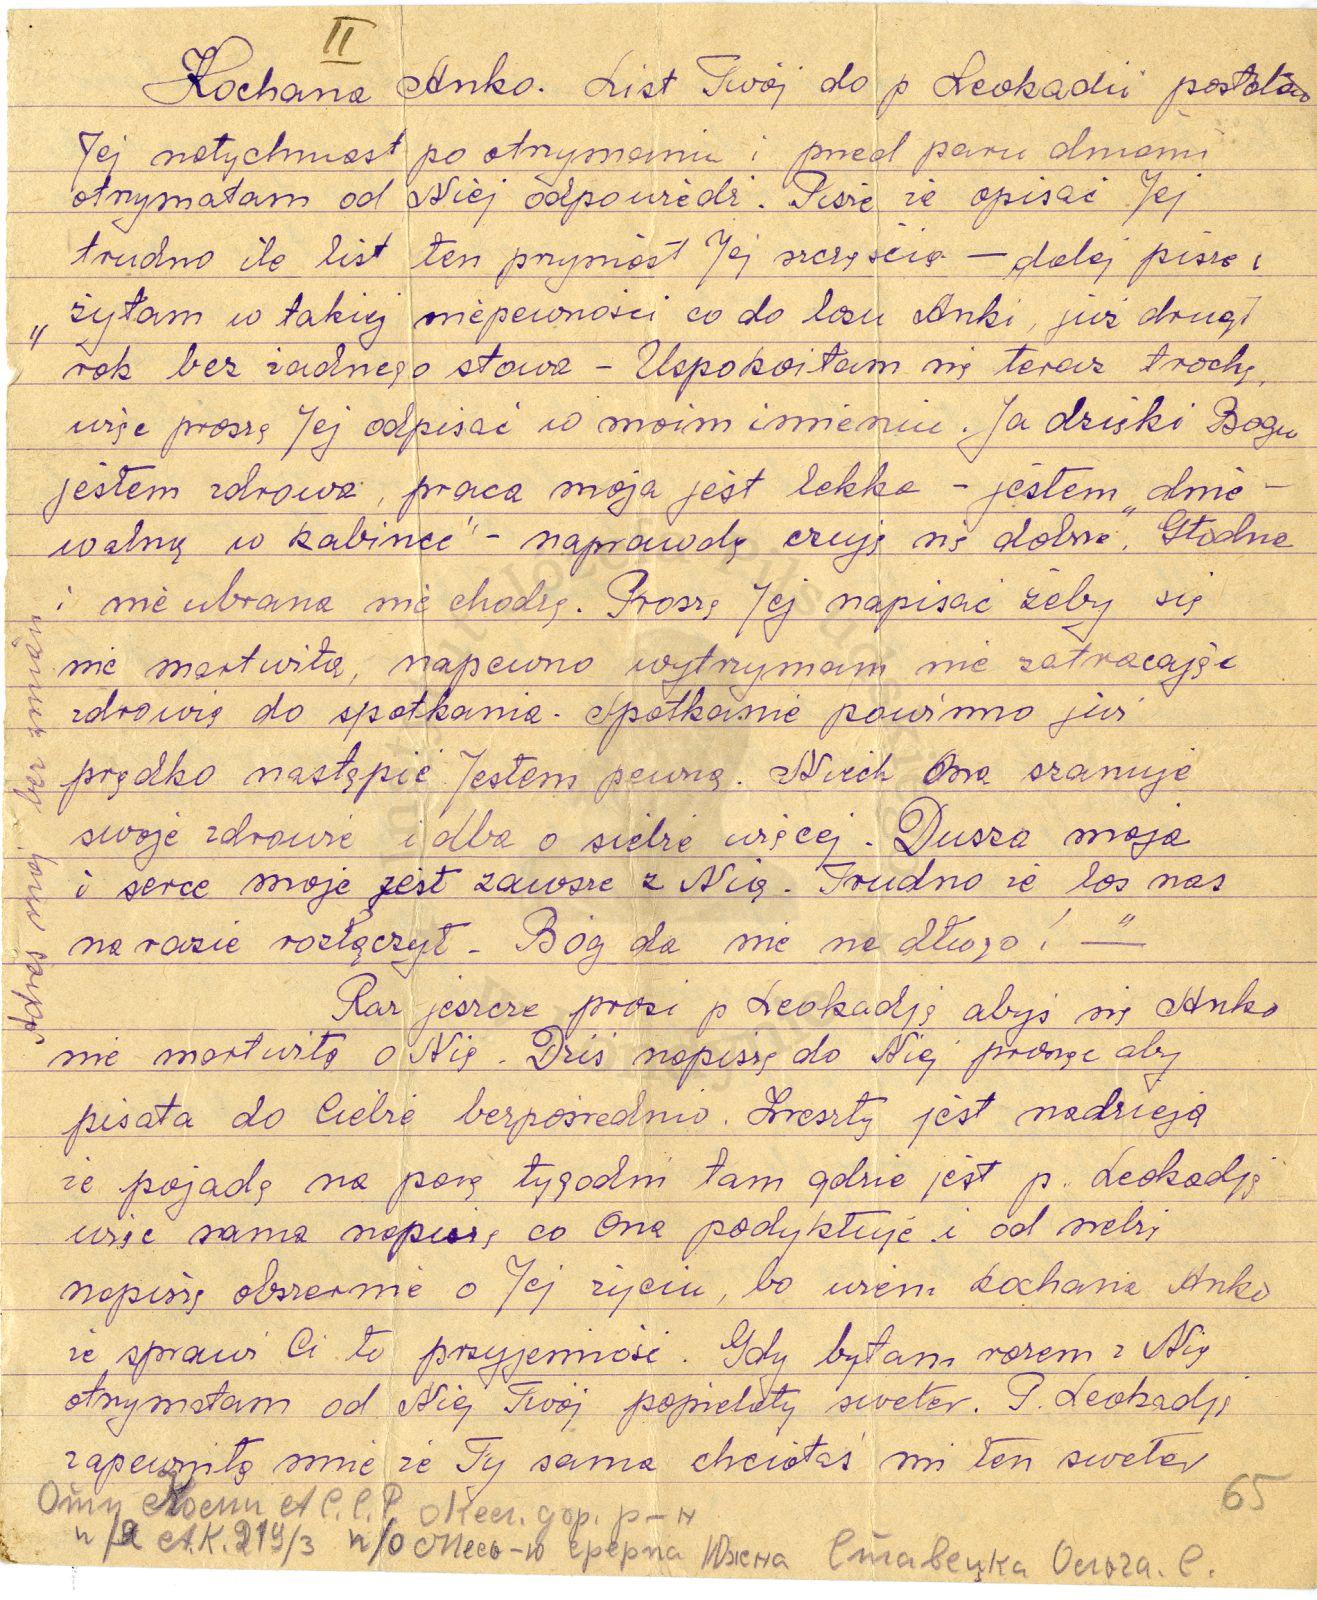 II
Kochana Anko. List Twój do p Leokadii posłałam
Jej natychmiast po otrzymaniu i przed paru dniami
otrzymałam od Niej odpowiedź. Pisze że opisać Jej
trudno ile list ten przyniósł Jej szczęścia — dalej pisze:
„żyłam w takiej niepewności co do losu Anki, już drugi
rok bez żadnego słowa – Uspokoiłam się teraz trochę,
więc proszę Jej odpisać w moim imieniu. Ja dzięki Bogu
jestem zdrowa, praca moja jest lekka – jestem „dnie-
walną w kabince" – naprawdę czuję się dobrze. Głodna
i nie ubrana nie chodzę. Proszę Jej napisać żeby się
nie martwiła, napewno wytrzymam nie zatracając
zdrowia do spotkania. Spotkanie powinno już
prędko nastąpić jestem pewna. Niech Ona szanuje
swoje zdrowie i dba o siebie więcej. Dusza moja
i serce moje jest zawsze z Nią. Trudno że los nas
na razie rozłączył – Bóg da nie na długo! — "
Raz jeszcze prosi p Leokadja abyś się Anko
nie martwiła o Nią. Dziś napiszę do Niej prosząc aby
pisała do Ciebie bezpośrednio. Zresztą jest nadzieja
że pojadę na parę tygodni tam gdzie jest p. Leokadja
więc sama napiszę co Ona podyktuje i od siebie
napiszę obszernie o Jej życiu, bo wiem kochana Anko
że sprawi Ci to przyjemność. Gdy byłam razem z Nią
otrzymałam od Niej Twój popielaty sweter. P. Leokadja
zapewniła mnie że Ty sama chciałaś mi ten sweter
Адрес mój bez zmian
65
Коми А.С.С.Р. гор. р-н
п/я А.К. 219/3 п/о Ставецка Ольга. С.